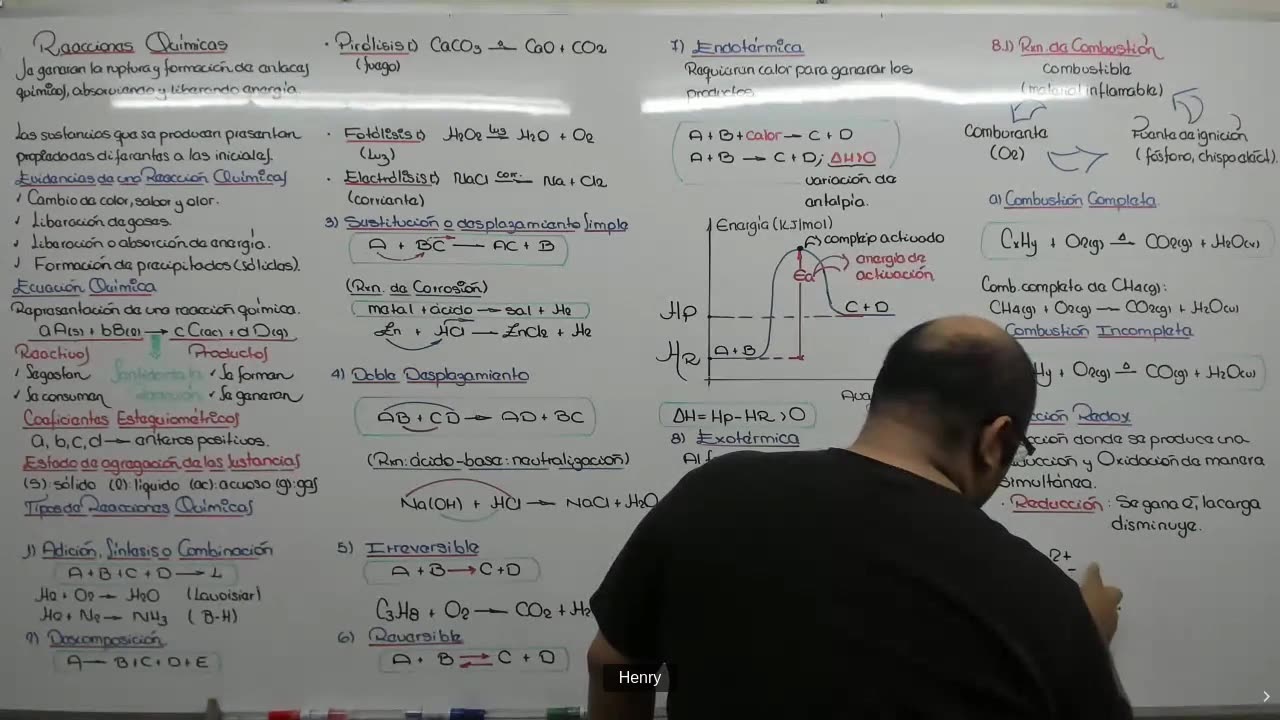 Reacciones Químicas
Se generan la ruptura y formación de enlaces
químicos, absorviendo y liberando energía.
Las sustancias que se producen presentan
propiedades diferentes a las iniciales.
Evidencias de una Reacción Química
✓ Cambio de color, sabor y olor.
✓ Liberación de gases.
✓ Liberación o absorción de energía.
✓ Formación de precipitados (sólidos).
Ecuación Química
Representación de una reacción química.
aA(s) + bB(l) → cC(ac) + dD(g)
Reactivos Productos
✓ Se gastan ✓ Se forman
✓ Se consumen ✓ Se generan
Coeficientes Estequiométricos
a, b, c, d → enteros positivos.
Estado de agregación de las sustancias
(s): sólido (l): líquido (ac): acuoso (g): gas
Tipos de Reacciones Químicas
1) Adición, Síntesis o Combinación
A + B + C + D → L
H2 + O2 → H2O (Lavoisier)
H2 + N2 → NH3 (B-H)
2) Descomposición
A → B + C + D + E
• Pirólisis: CaCO3 Δ→ CaO + CO2
(fuego)
• Fotólisis: H2O2 luz→ H2O + O2
(Luz)
• Electrólisis: NaCl corr.→ Na + Cl2
(corriente)
3) Sustitución o desplazamiento Simple
A + BC → AC + B
(Rxn. de Corrosión)
metal + ácido → sal + H2
Zn + HCl → ZnCl2 + H2
4) Doble Desplazamiento
AB + CD → AD + BC
(Rxn: ácido-base: neutralización)
Na(OH) + HCl → NaCl + H2O
5) Irreversible
A + B → C + D
C3H8 + O2 → CO2 + H2
6) Reversible
A + B ⇌ C + D
7) Endotérmica
Requieren calor para generar los
productos.
A + B + calor → C + D
A + B → C + D; ΔH>0
variación de
entalpia.
Energía (KJ/mol)
complejo activado
energía de
activación
Ea
C + D
Hp
A + B
HR
ΔH = Hp - HR > 0
8) Exotérmica
8.1) Rxn. de Combustión
combustible
(material inflamable)
Comburente Fuente de ignición
(O2) (fósforo, chispa eléct.)
a) Combustión Completa
CxHy + O2(g) Δ→ CO2(g) + H2O(v)
Comb. completa de CH4(g):
CH4(g) + O2(g) → CO2(g) + H2O(v)
Combustión Incompleta
Hy + O2(g) Δ→ CO(g) + H2O(v)
cción Redox
cción donde se produce una
ducción y Oxidación de manera
simultánea.
• Reducción: Se gana e-, la carga
disminuye.
2+
Henry